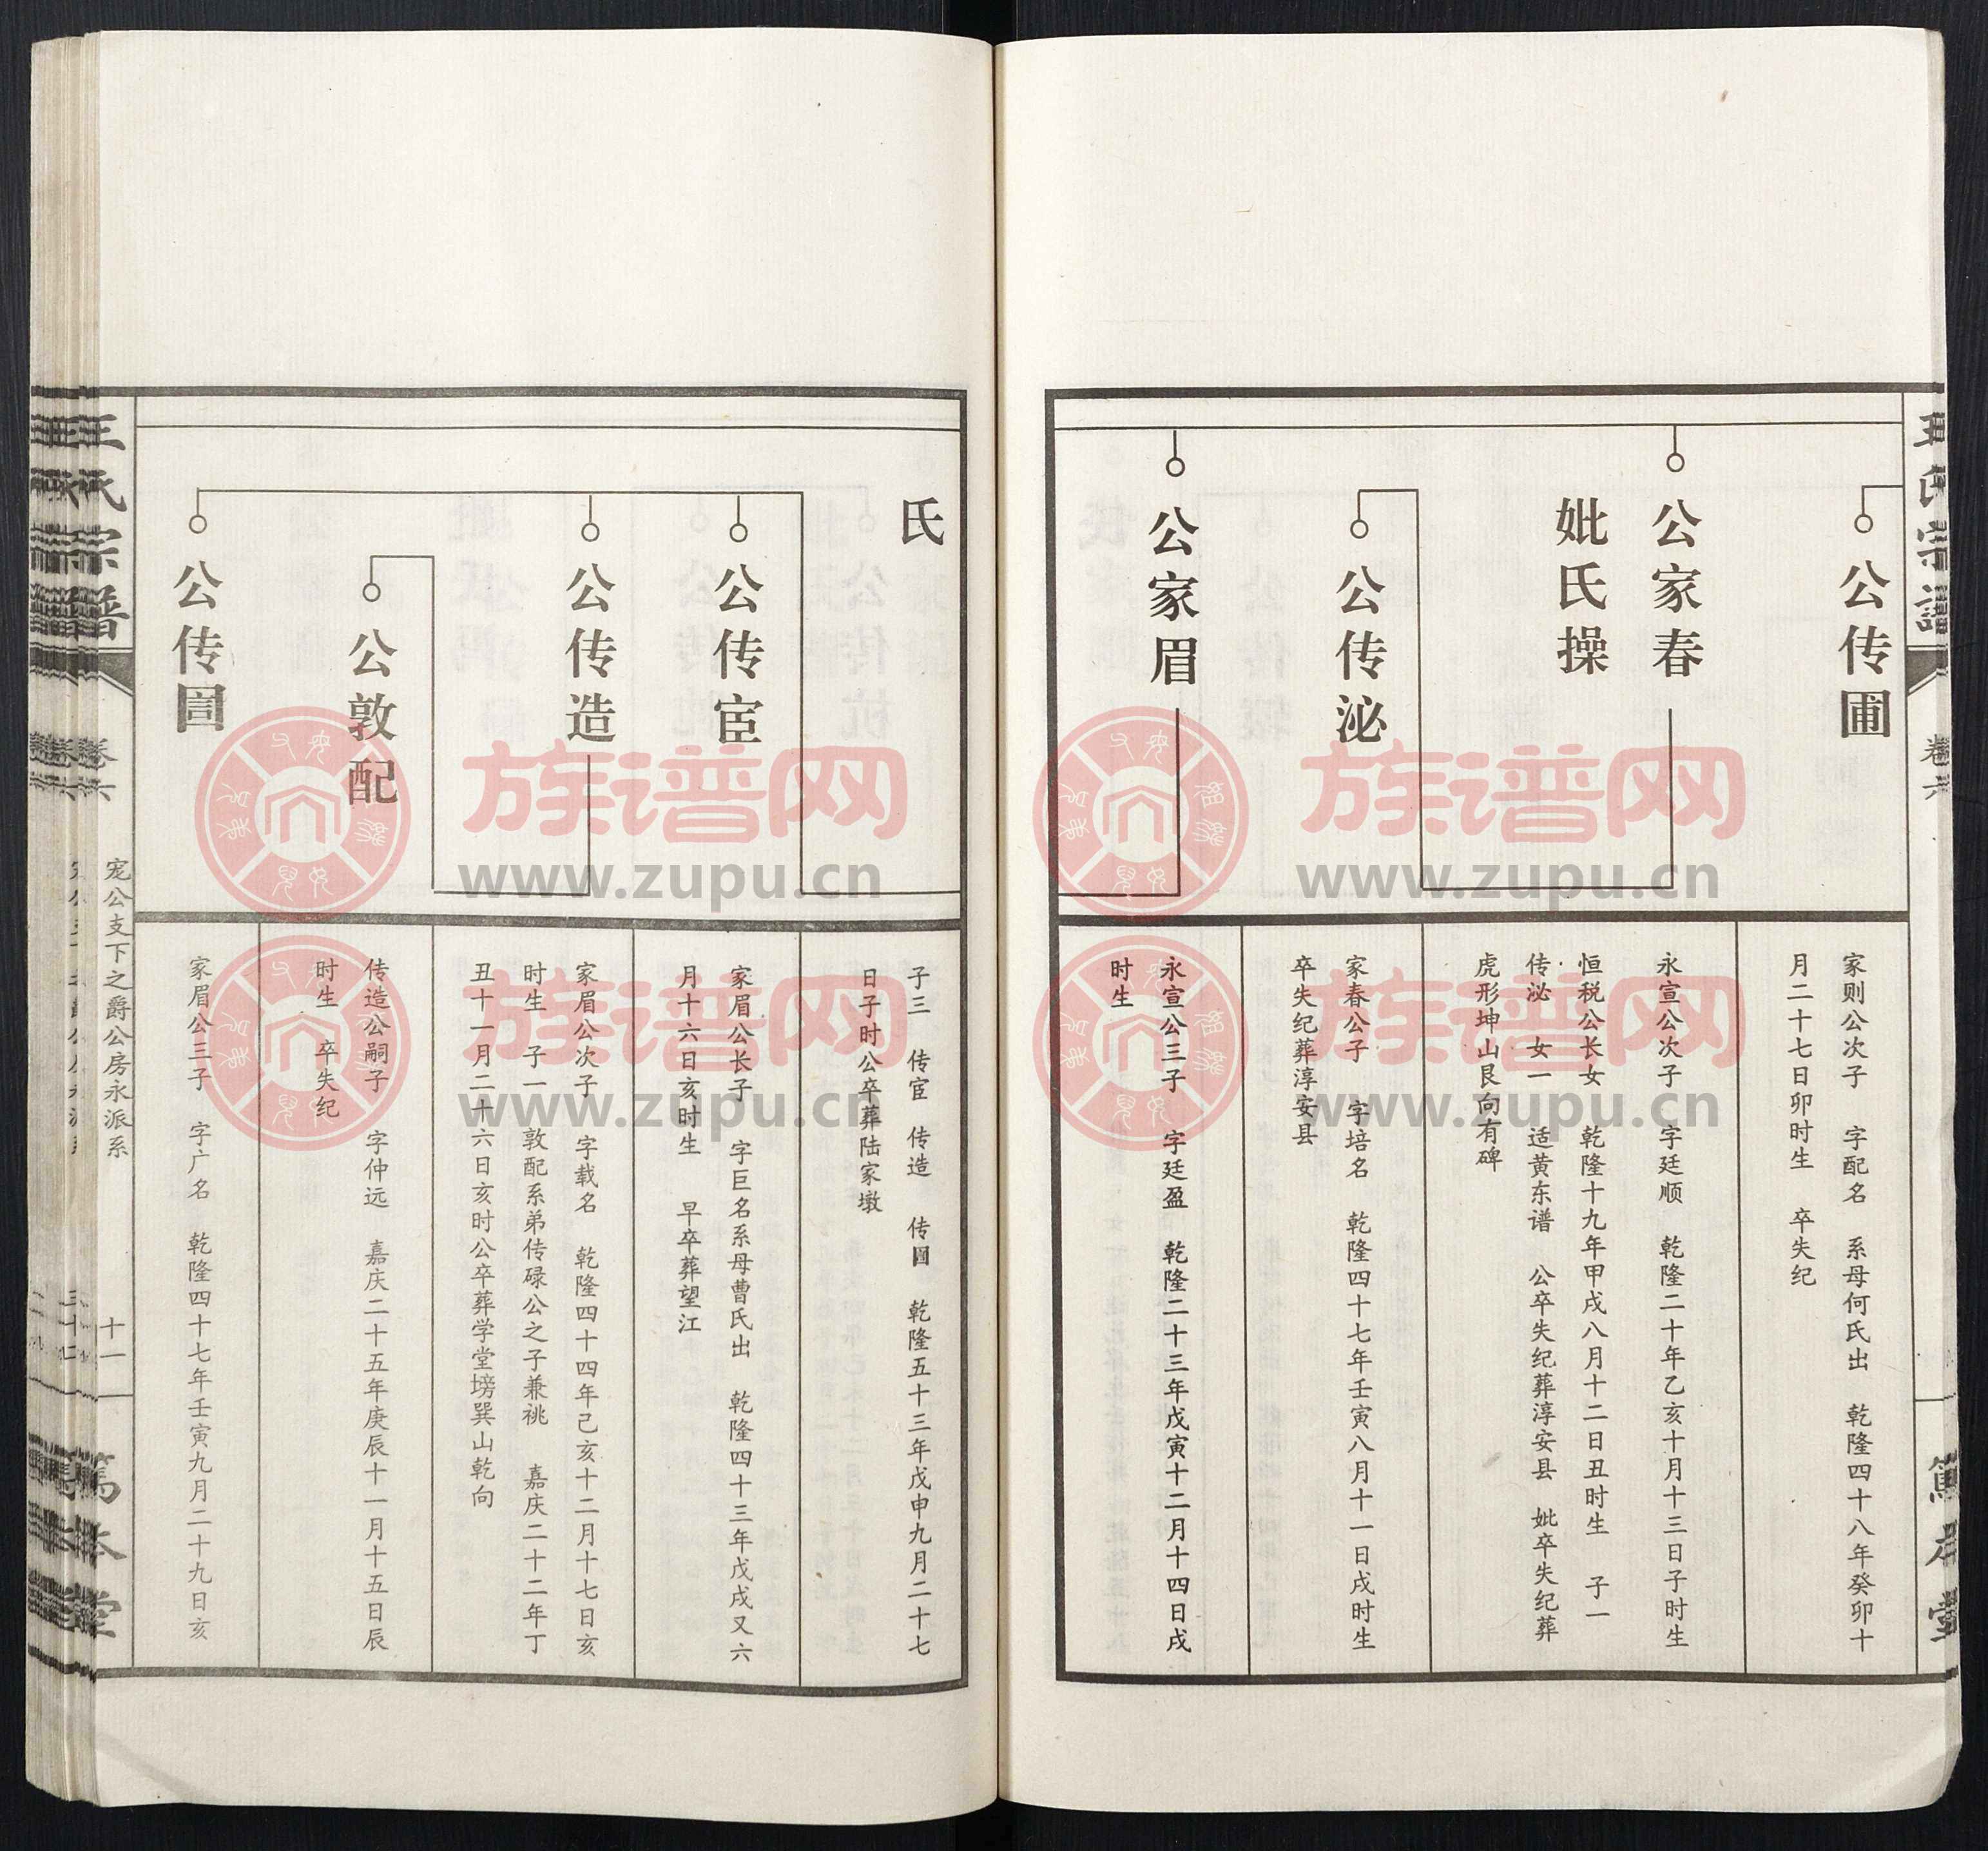 王氏宗谱
卷六
笃本堂
公传圃
家则公次子 字配名 系母何氏出 乾隆四十八年癸卯十
月二十七日卯时生 卒失纪
公家春
妣氏操
永宣公次子 字廷顺 乾隆二十年乙亥十月十三日子时生
恒税公长女 乾隆十九年甲戌八月十二日丑时生 子一
传泌 女一 适黄东谱 公卒失纪葬淳安县 妣卒失纪葬
虎形坤山艮向有碑
公传泌
家春公子 字培名 乾隆四十七年壬寅八月十一日戌时生
卒失纪葬淳安县
公家眉
永宣公三子 字廷盈 乾隆二十三年戊寅十二月十四日戌
时生
氏
子三 传宦 传造 传圁 乾隆五十三年戊申九月二十七
日子时公卒葬陆家墩
公传宦
家眉公长子 字巨名系母曹氏出 乾隆四十三年戊戌又六
月十六日亥时生 早卒葬望江
公传造
家眉公次子 字载名 乾隆四十四年己亥十二月十七日亥
时生 子一 敦配系弟传碌公之子兼祧 嘉庆二十二年丁
丑十一月二十六日亥时公卒葬学堂塝巽山乾向
公敦配
传造公嗣子 字仲远 嘉庆二十五年庚辰十一月十五日辰
时生 卒失纪
公传圁
家眉公三子 字广名 乾隆四十七年壬寅九月二十九日亥
王氏宗谱
卷六
宠公支下之爵公房永派系
十一
笃本堂
族谱网
www.zupu.cn
族谱网
www.zupu.cn
族谱网
www.zupu.cn
族谱网
www.zupu.cn